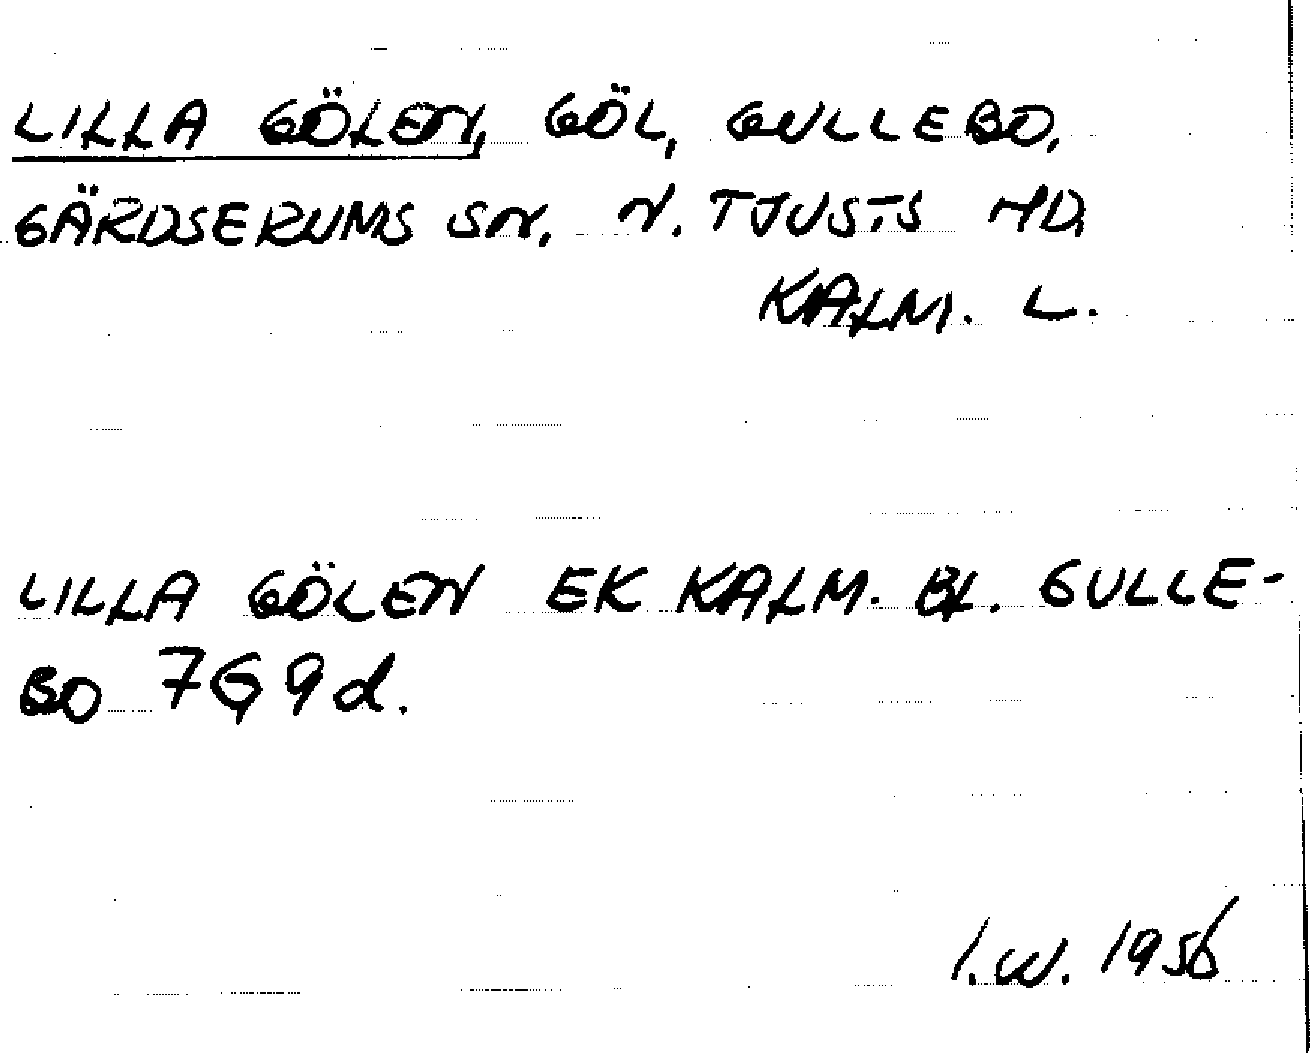 LILLA GÖLEN, GÖL, GULLEBO,
GÄRDSERUMS SN, N. TJUSTS HD
KALM. L.
LILLA GÖLEN EK KALM. BL. GULLE-
BO 7G9d.
I.W. 1956